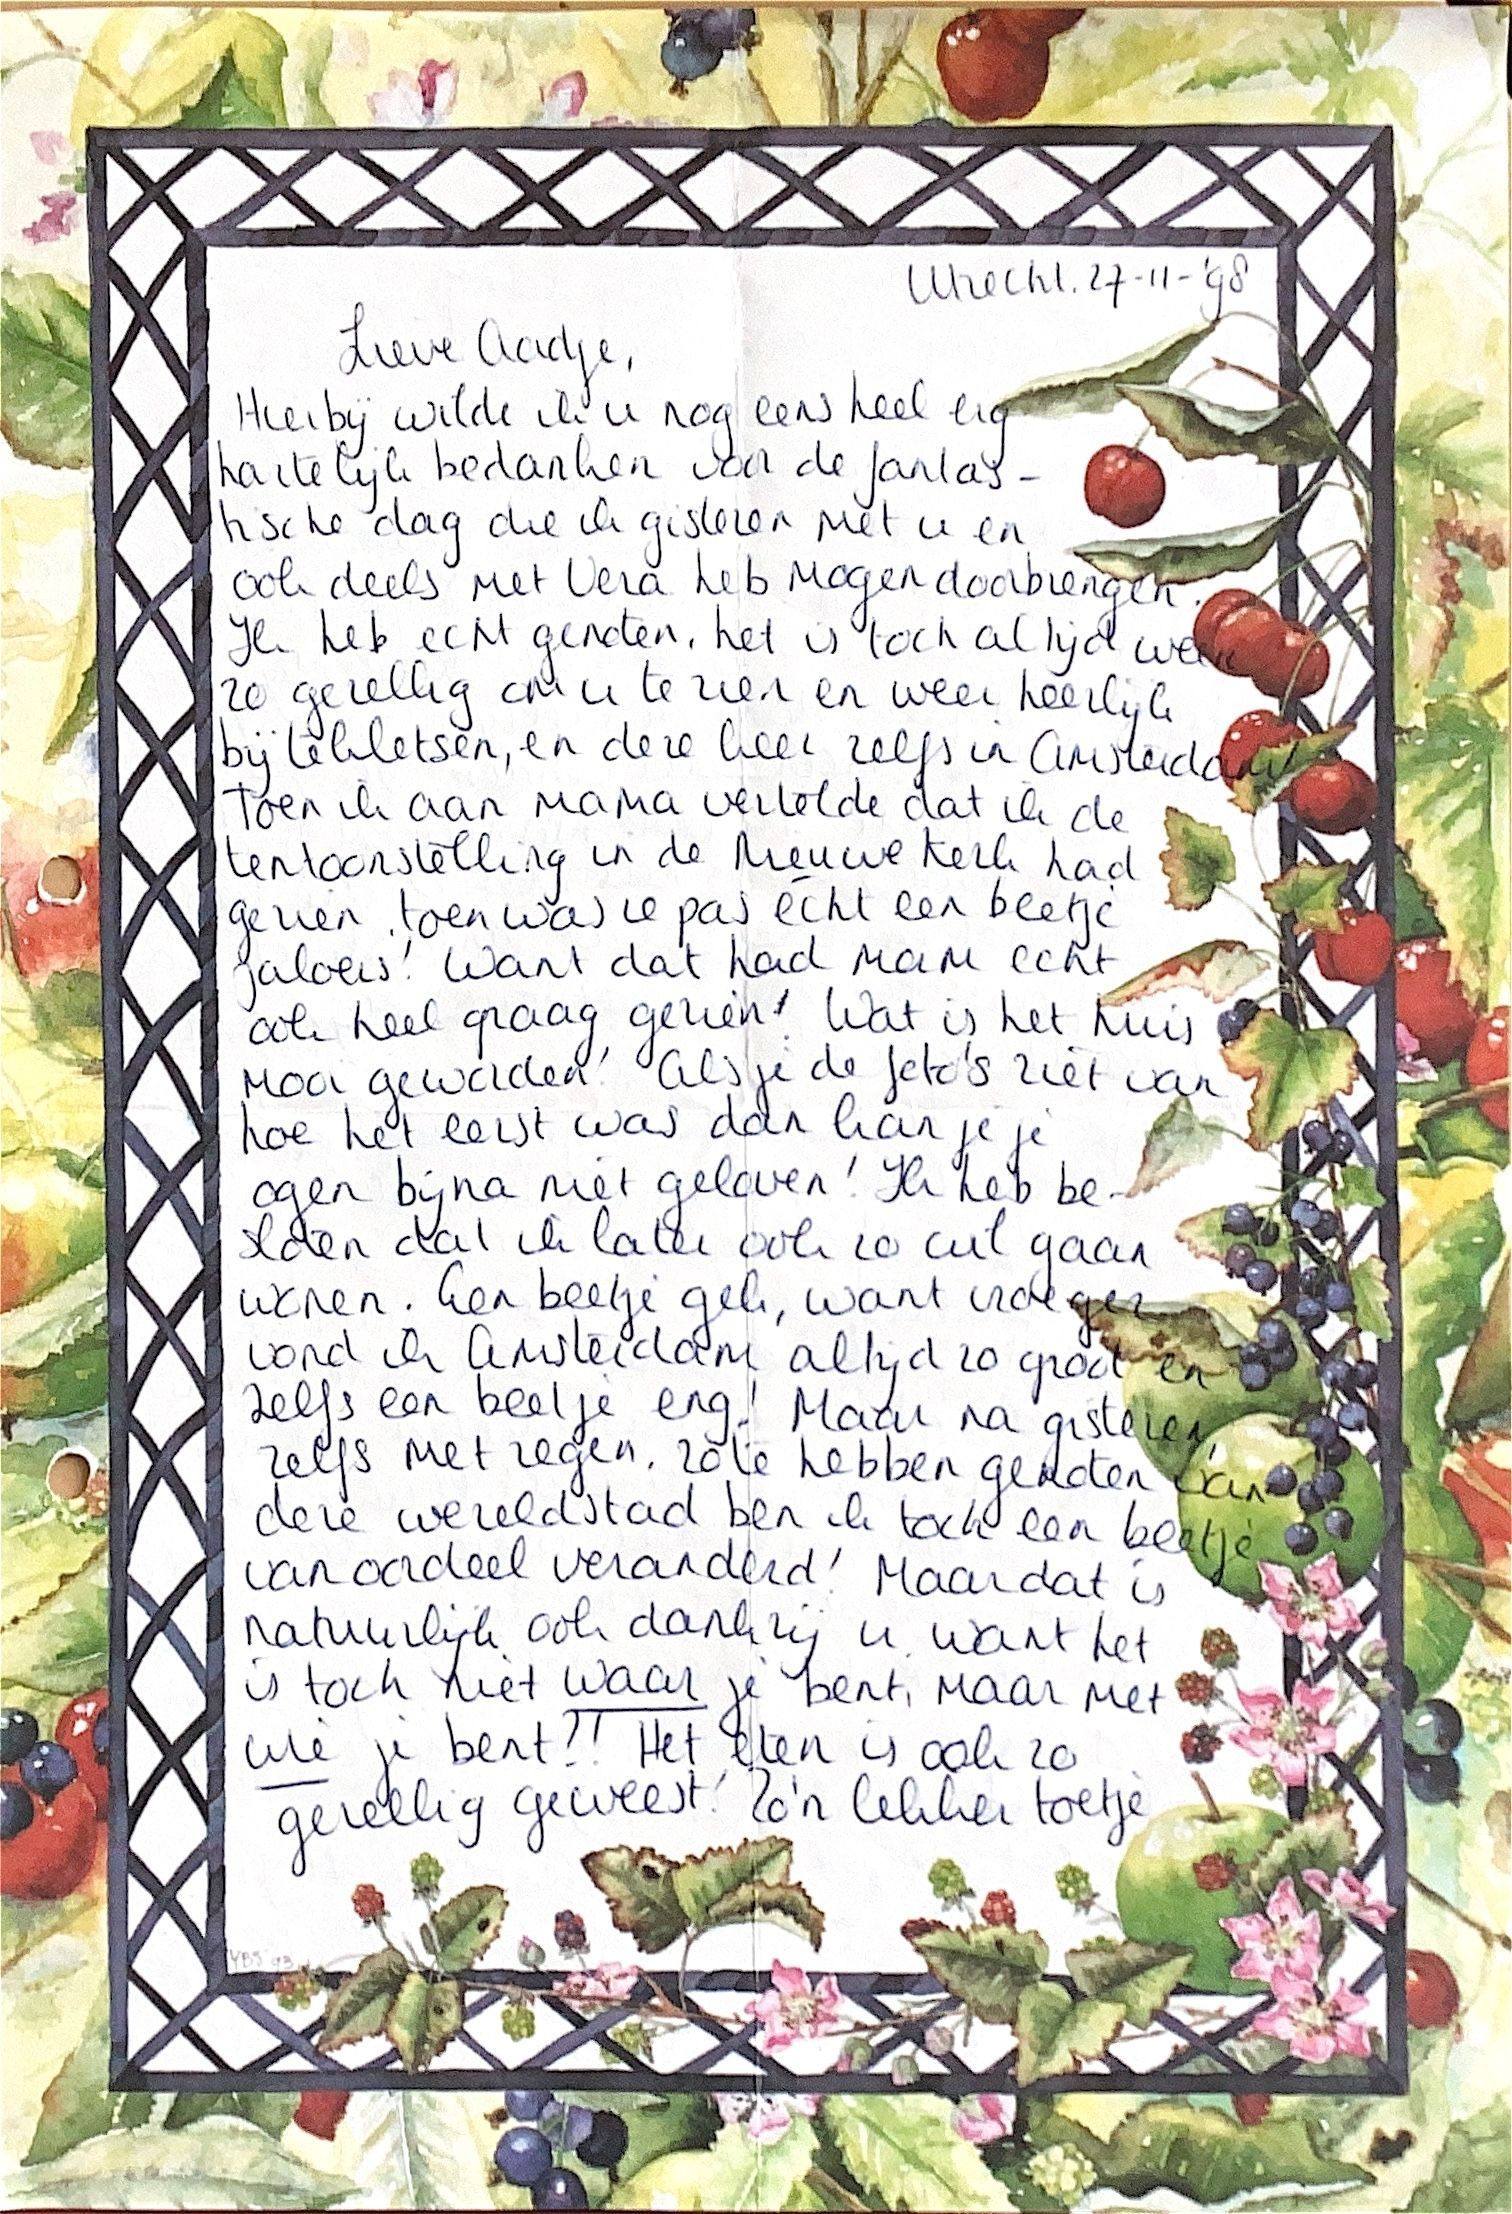 Utrecht. 27-11-'98
Lieve Aadje,
Hierbij wilde ik u nog eens heel erg
hartelijk bedanken voor de fantas-
tische dag die ik gisteren met u en
ook deels met Vera heb mogen doorbrengen.
Ik heb echt genoten, het is toch altijd weer
zo gezellig om u te zien en weer heerlijk
bij te kletsen, en deze keer zelfs in Amsterdam!
Toen ik aan mama vertelde dat ik de
tentoonstelling in de Nieuwe Kerk had
gezien, toen was ze pas écht een beetje
jaloers! Want dat had mam echt
ook heel graag gezien! Wat is het huis
mooi geworden! Als je de foto's ziet van
hoe het eerst was dan kan je je
ogen bijna niet geloven! Ik heb be-
sloten dat ik later ook zo wil gaan
wonen. Een beetje gek, want vroeger
vond ik Amsterdam altijd zo groot en
zelfs een beetje eng! Maar na gisteren,
zelfs met regen, zo te hebben genoten van
deze wereldstad ben ik toch een beetje
van oordeel veranderd! Maar dat is
natuurlijk ook dankzij u want het
is toch niet waar je bent, maar met
wie je bent?! Het eten is ook zo
gezellig geweest! Zo'n lekker toetje
YBS '93